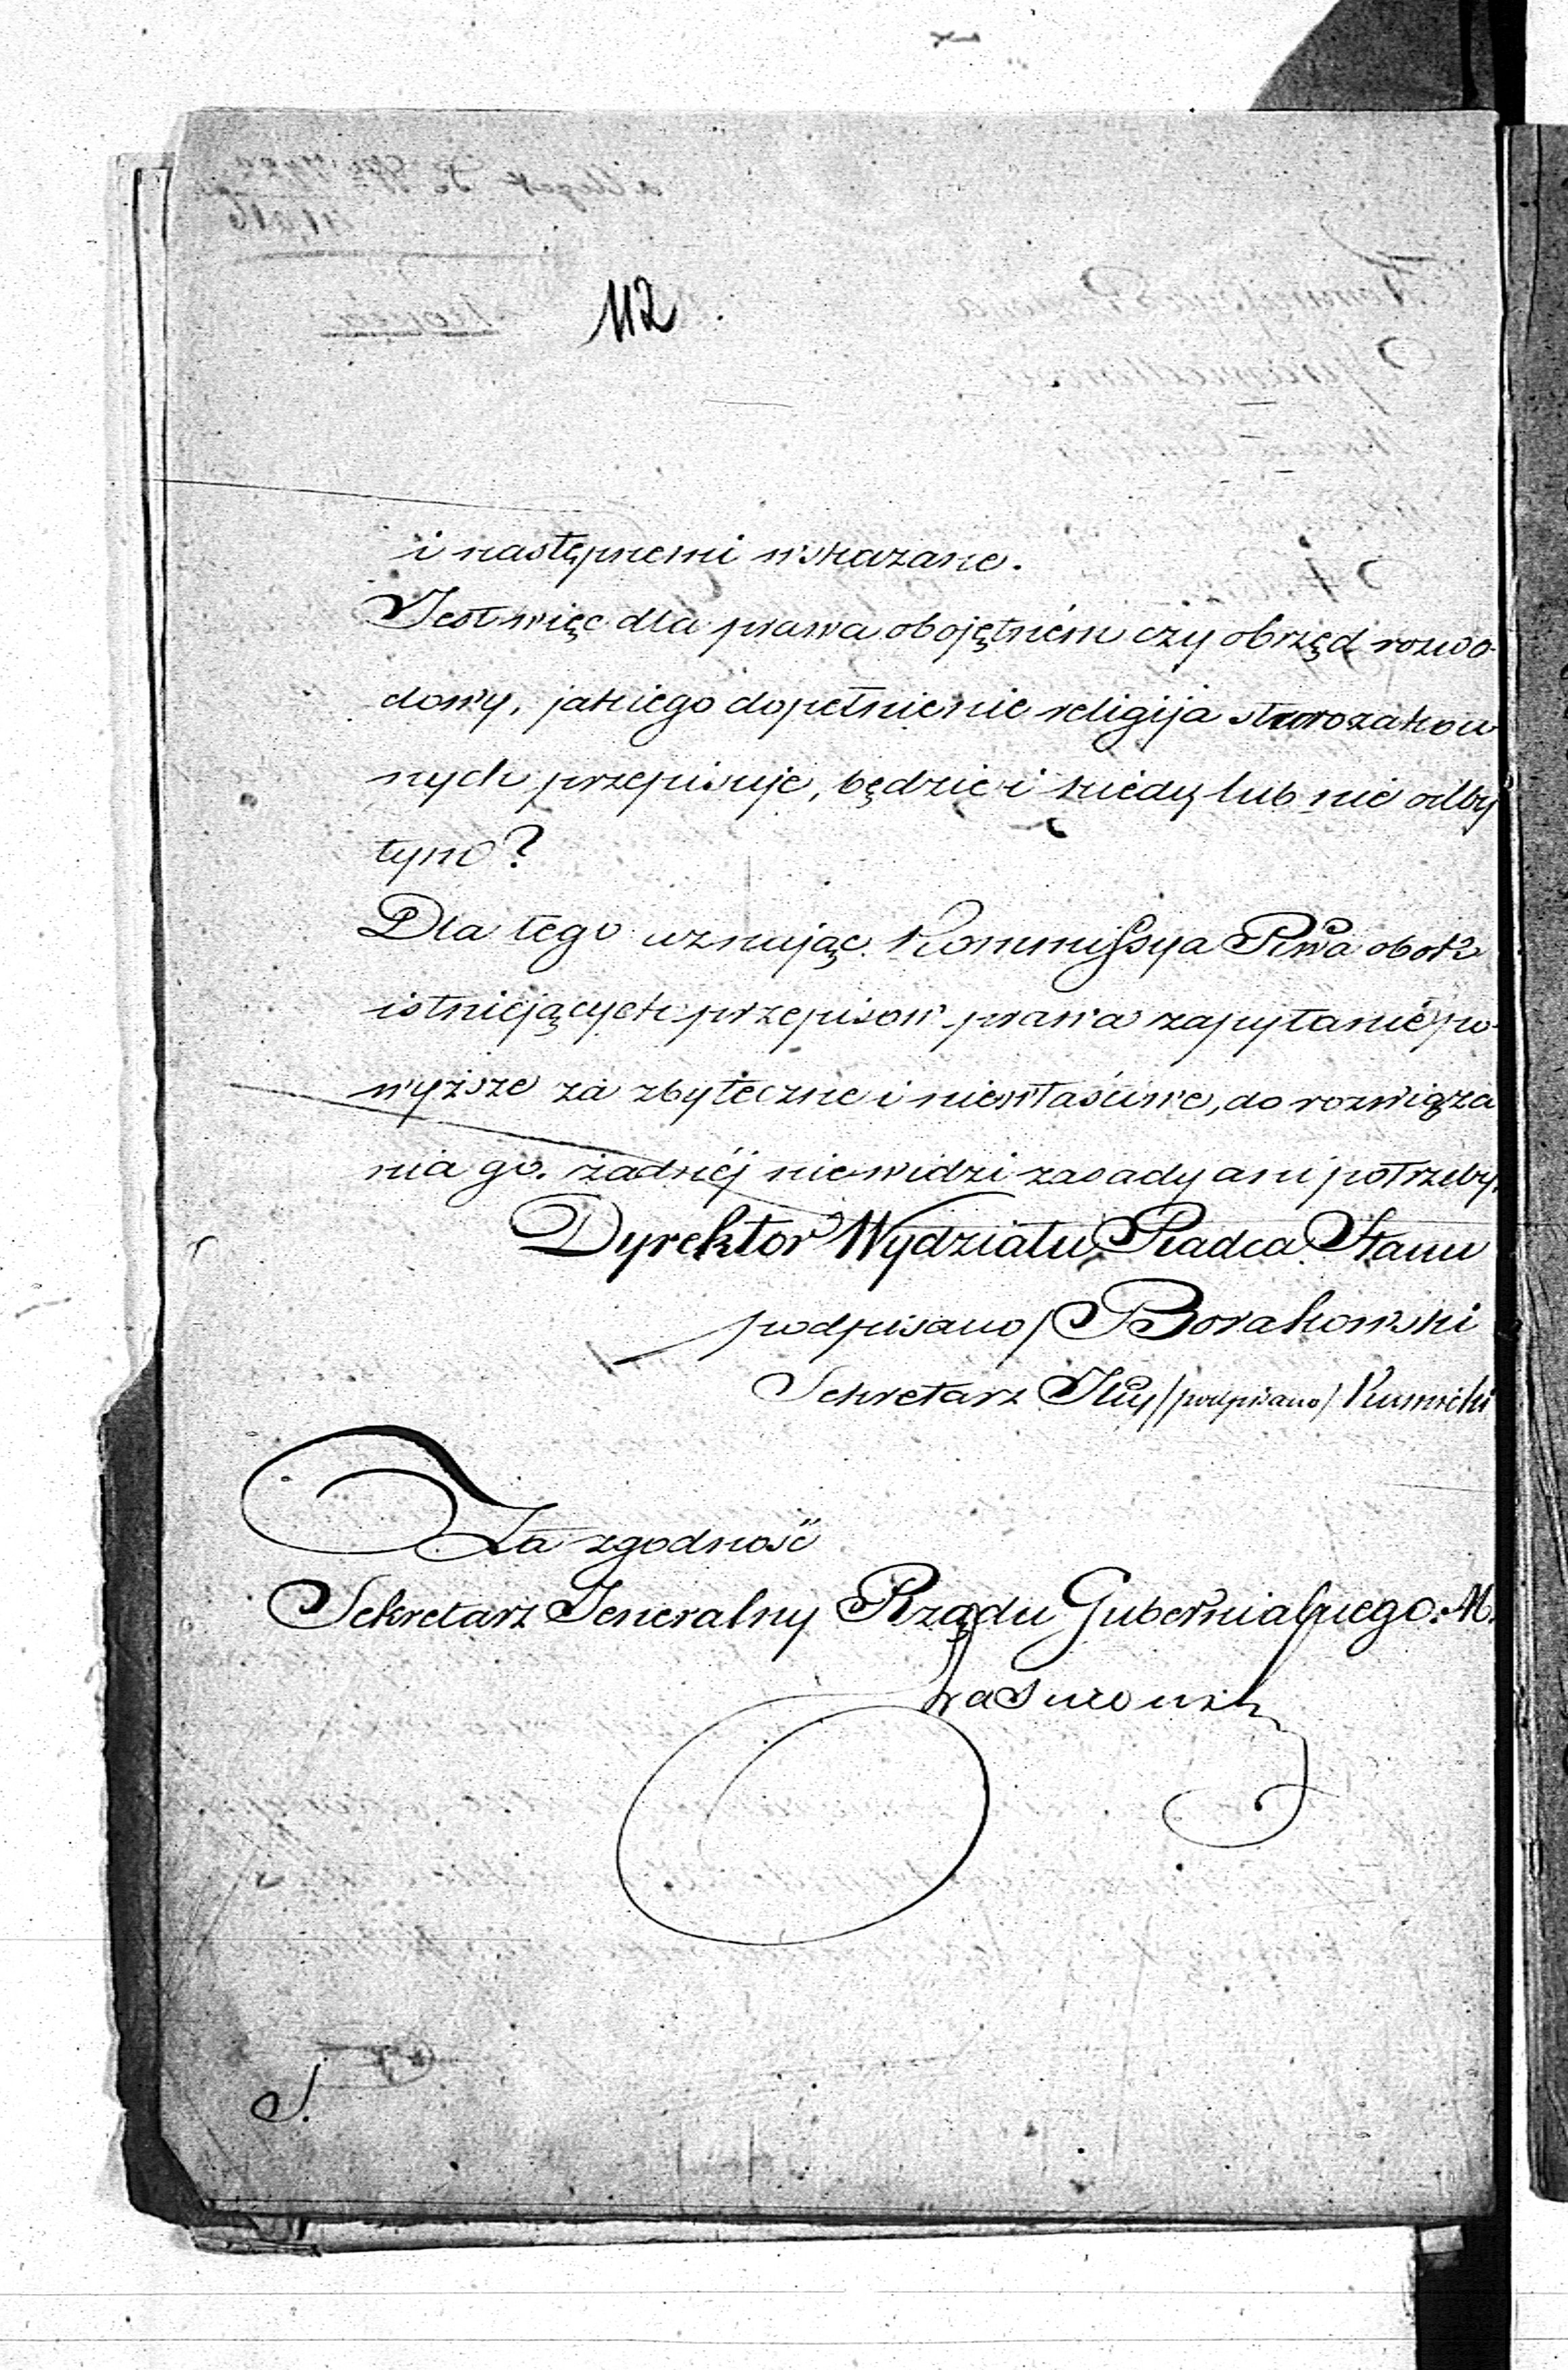 112
i następnemi wskazane.
Jest więc dla prawa obojętném czy obrzęd rozwo-
dowy, jakiego dopełnienie religija starozakon
nych przepisuje, będzie i kiedy lub nie odby
tym?
Dla tego uznając Kommissya Rwa obok
istniejących przepisow prawa zapytanie po-
wyższe za zbyteczne i niewłaściwe, do rozwiąza
nia go żadnéj niewidzi zasady ani potrzeby.
Dyrektor Wydziału, Radca Stanu
podpisano/ Borakowski
Sekretarz Jlny /podpisano/
Za zgodność
Sekretarz Jeneralny Rządu Gubernialnego M.